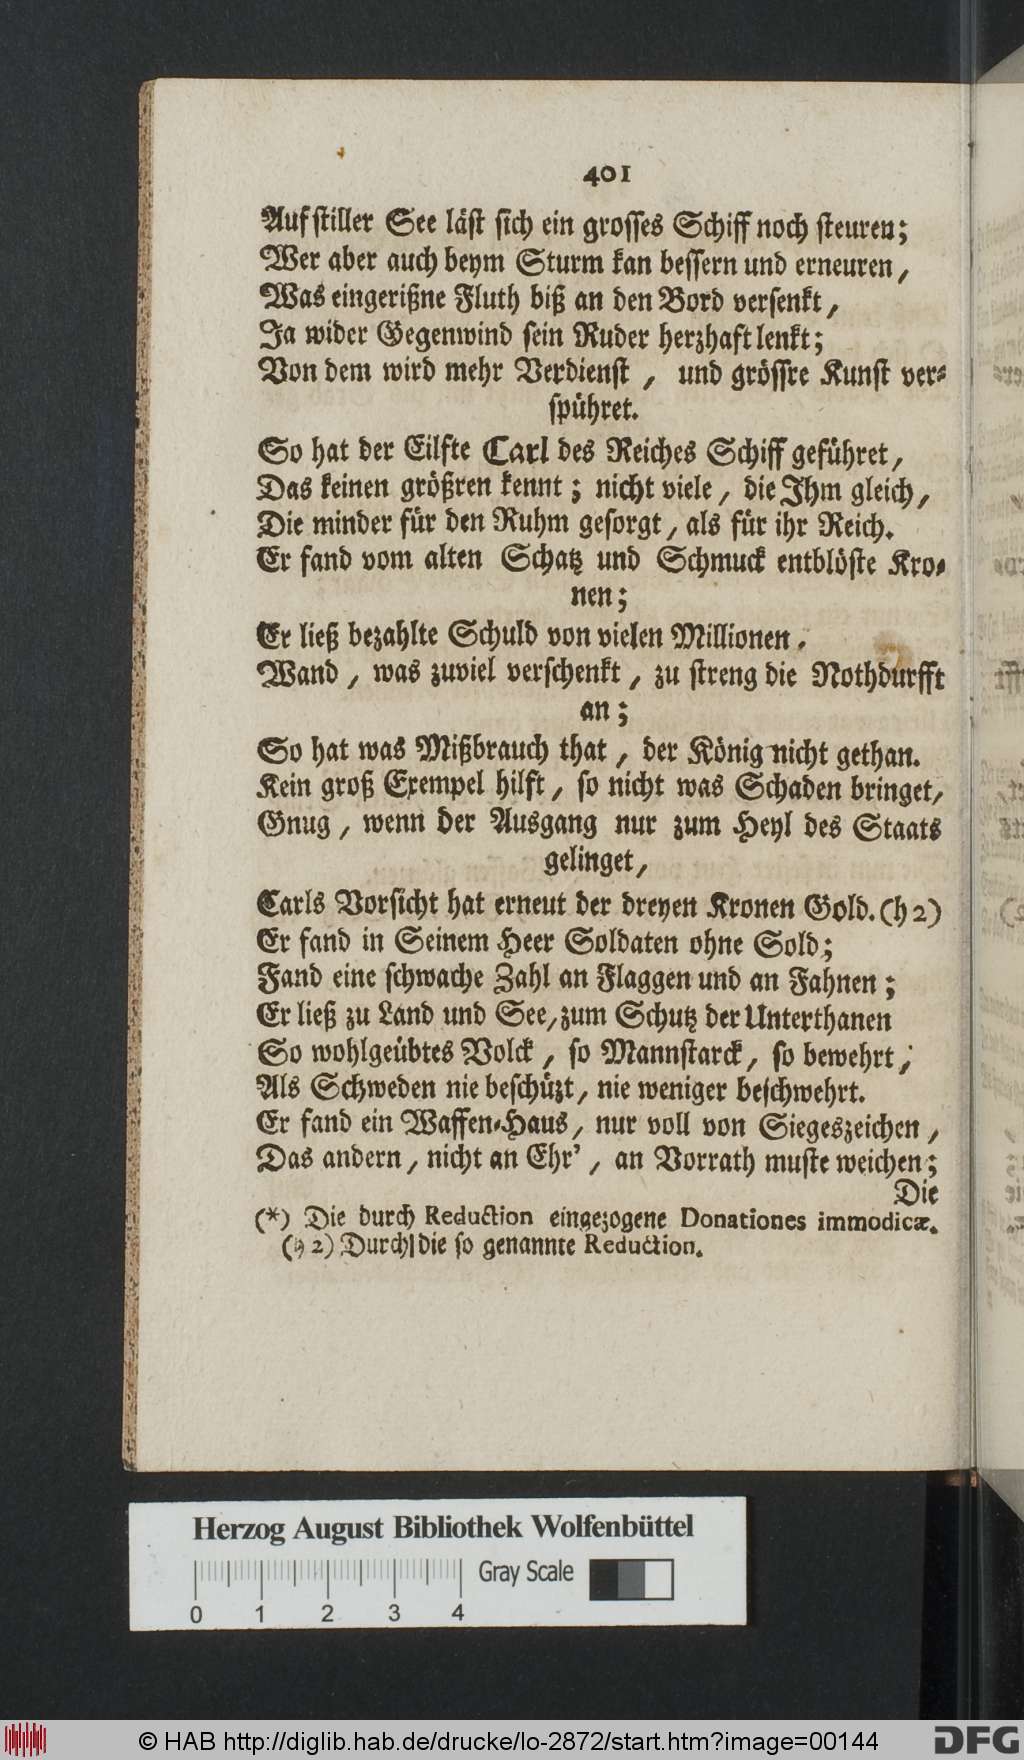 401
Auf stiller See läst sich ein grosses Schiff noch steuren;
Wer aber auch beym Sturm kan bessern und erneuren,
Was eingerißne Fluth biß an den Bord versenkt,
Ja wider Gegenwind sein Ruder herzhaft lenkt;
Von dem wird mehr Verdienst, und grössre Kunst ver-
spühret.
So hat der Eilfte Carl des Reiches Schiff geführet,
Das keinen größren kennt; nicht viele, die Ihm gleich,
Die minder für den Ruhm gesorgt, als für ihr Reich.
Er fand vom alten Schatz und Schmuck entblöste Kro-
nen;
Er ließ bezahlte Schuld von vielen Millionen.
Wand, was zuviel verschenkt, zu streng die Nothdurfft
an;
So hat was Mißbrauch that, der König nicht gethan.
Kein groß Exempel hilft, so nicht was Schaden bringet,
Gnug, wenn der Ausgang nur zum Heyl des Staats
gelinget,
Carls Vorsicht hat erneut der dreyen Kronen Gold. (h 2)
Er fand in Seinem Heer Soldaten ohne Sold;
Fand eine schwache Zahl an Flaggen und an Fahnen;
Er ließ zu Land und See, zum Schutz der Unterthanen
So wohlgeübtes Volck, so Mannstarck, so bewehrt,
Als Schweden nie beschüzt, nie weniger beschwehrt.
Er fand ein Waffen-Haus, nur voll von Siegeszeichen,
Das andern, nicht an Ehr', an Vorrath muste weichen;
Die
(*) Die durch Reduction eingezogene Donationes immodicæ.
(h 2) Durch die so genannte Reduction.
Herzog August Bibliothek Wolfenbüttel
Gray Scale
0 1 2 3 4
© HAB http://diglib.hab.de/drucke/lo-2872/start.htm?image=00144
DFG